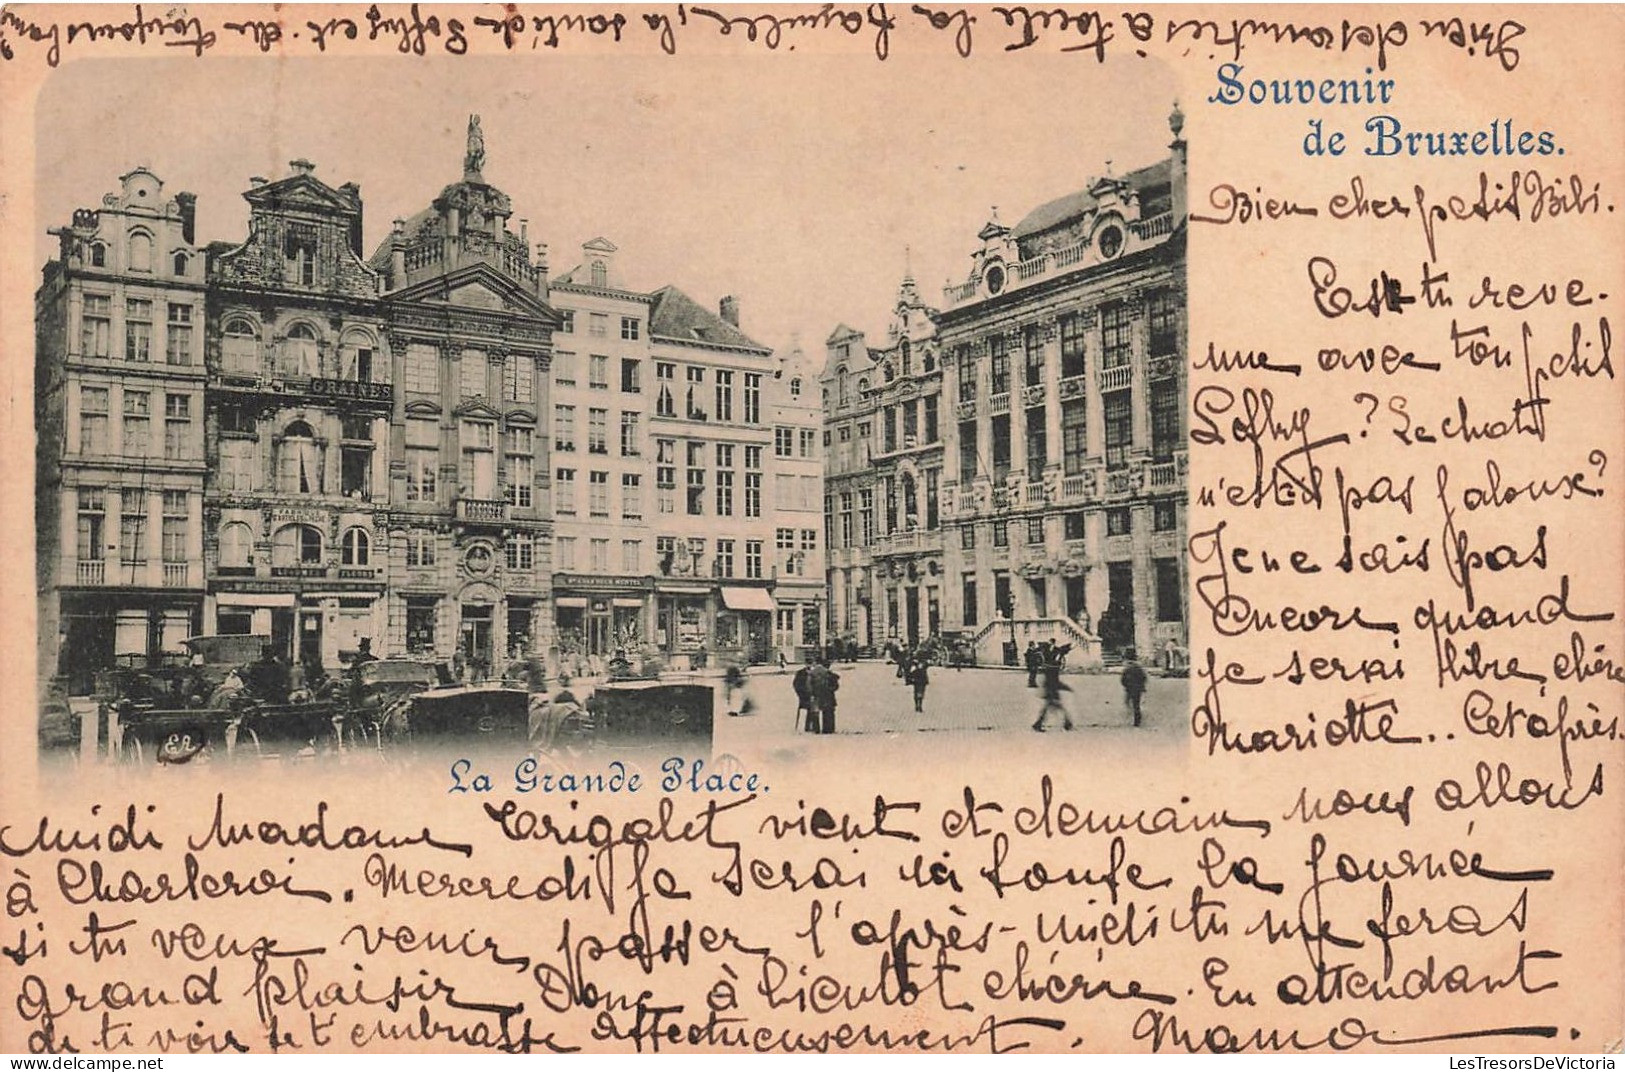 Souvenir
de Bruxelles.
Bien cher petit Bibi.
Est tu reve-
nue avec ton petit
? Le chat
n'est il pas jaloux?
Je ne sais pas
encore quand
je serai libre, chère
Mariotte.. Cet après-
midi Madame Trigalet vient et demain nous allons
à Charleroi. Mercredi je serai ici toute la journée
si tu veux venir passer l'après-midi tu me feras
grand plaisir. Donc à bientôt chérie. En attendant
de te voir je t'embrasse affectueusement. Mama.
Bien des amitiés à toute la famille, la santé de est
GRAINES
La Grande Place.
ER
LesTresorsDeVictoria